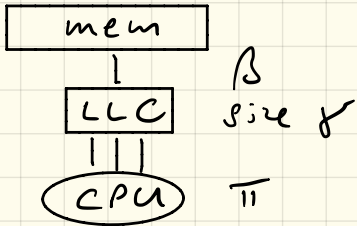 mem
β
LLC
size γ
CPU π